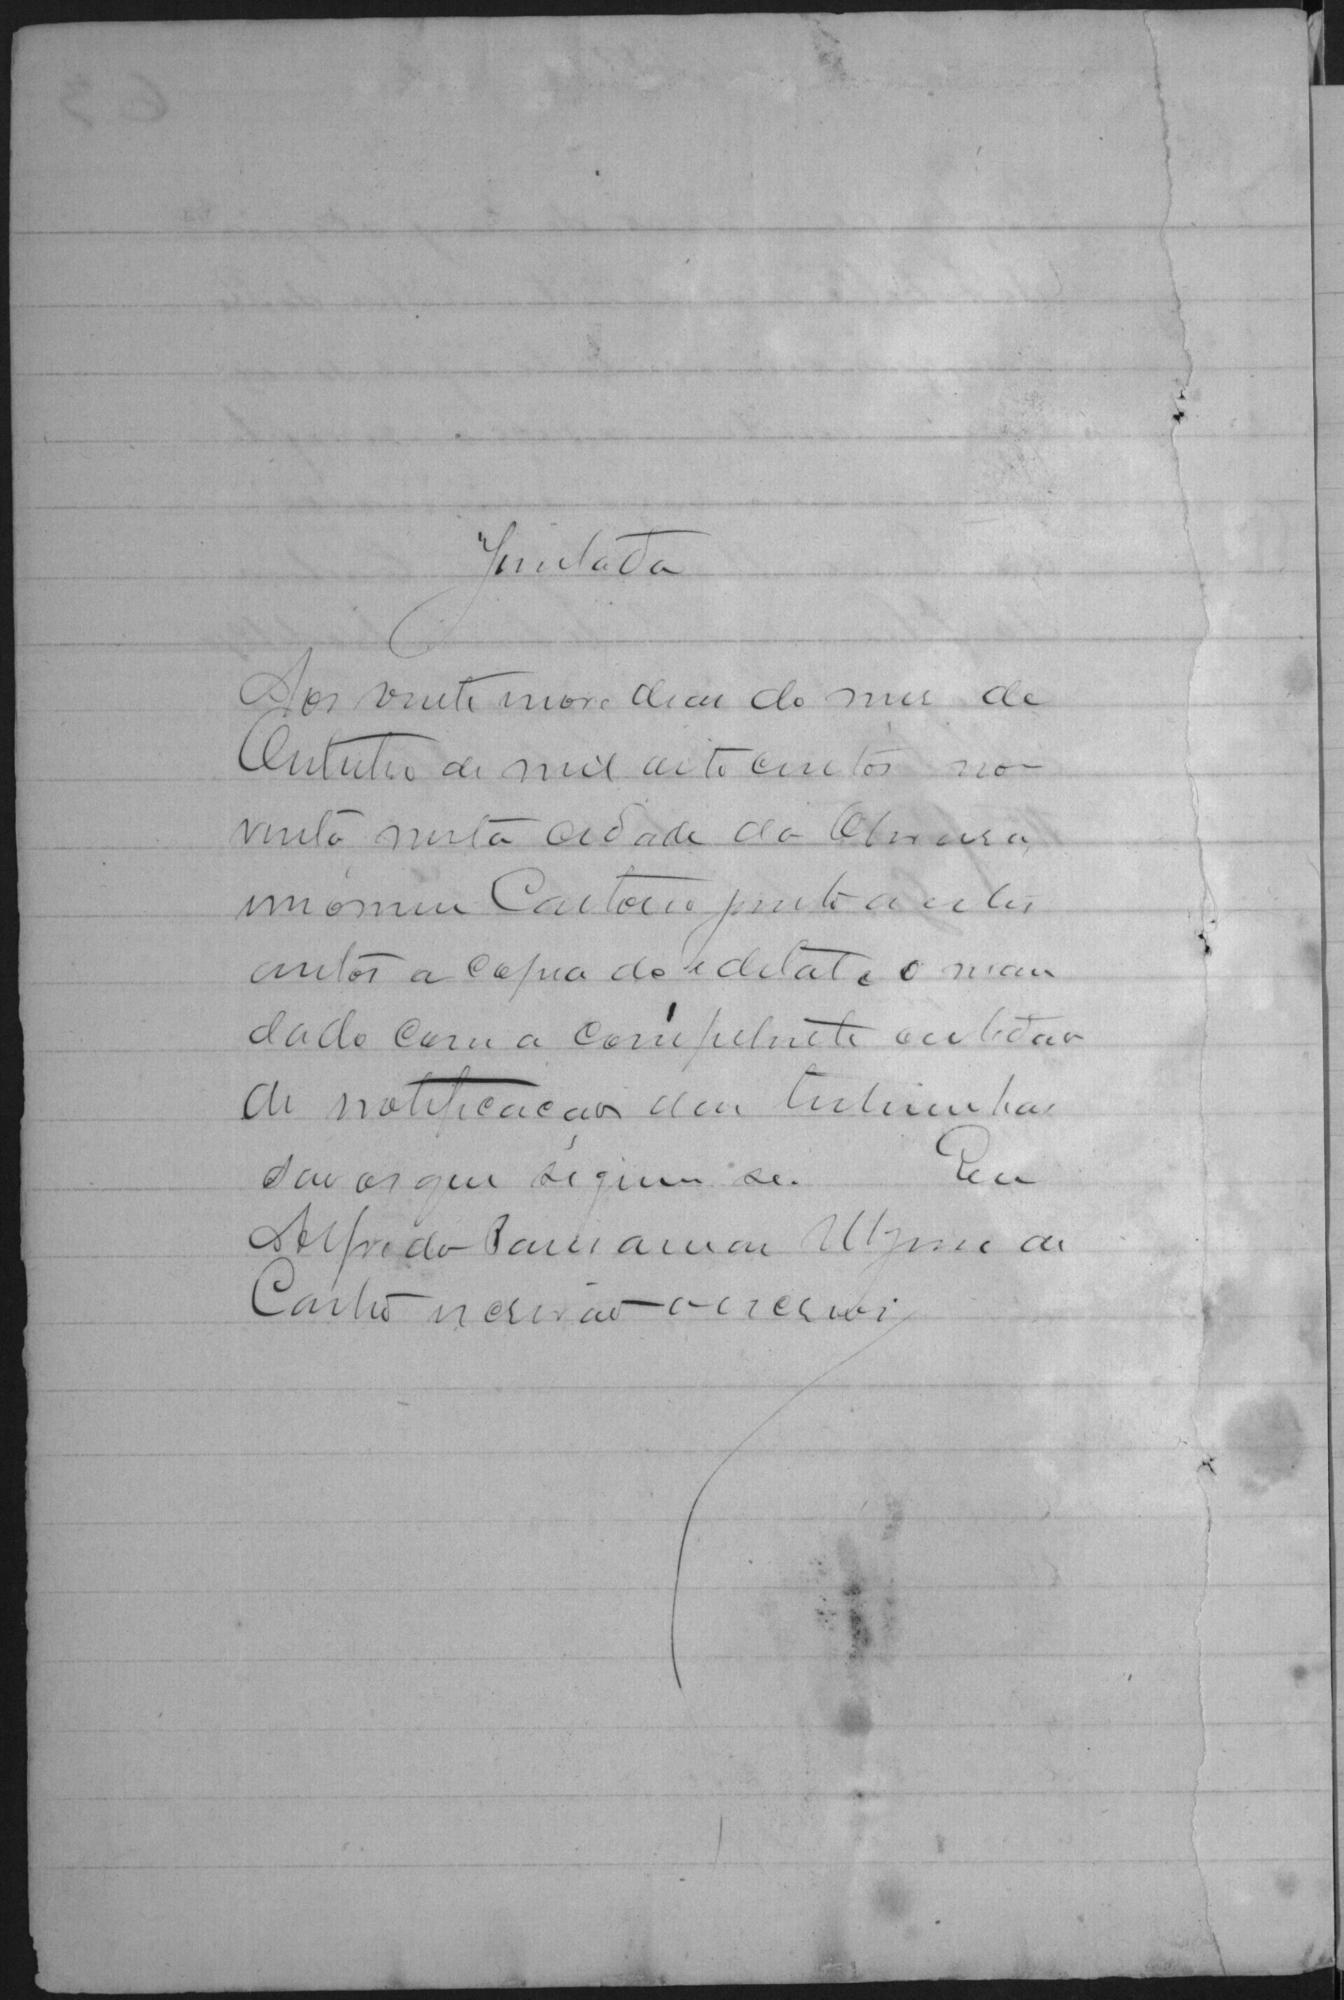 Juntada
Aos vinte nove dias do mes de
Outubro de mil oito centos no-
venta nesta cidade da
em meu Cartorio junto a estes
autos a copia do edital e o man
dado com a competente certidão
de notificacão das testimunhas
são os que seguem se. Eu
Alfredo de
Castro escrivão o escrevi